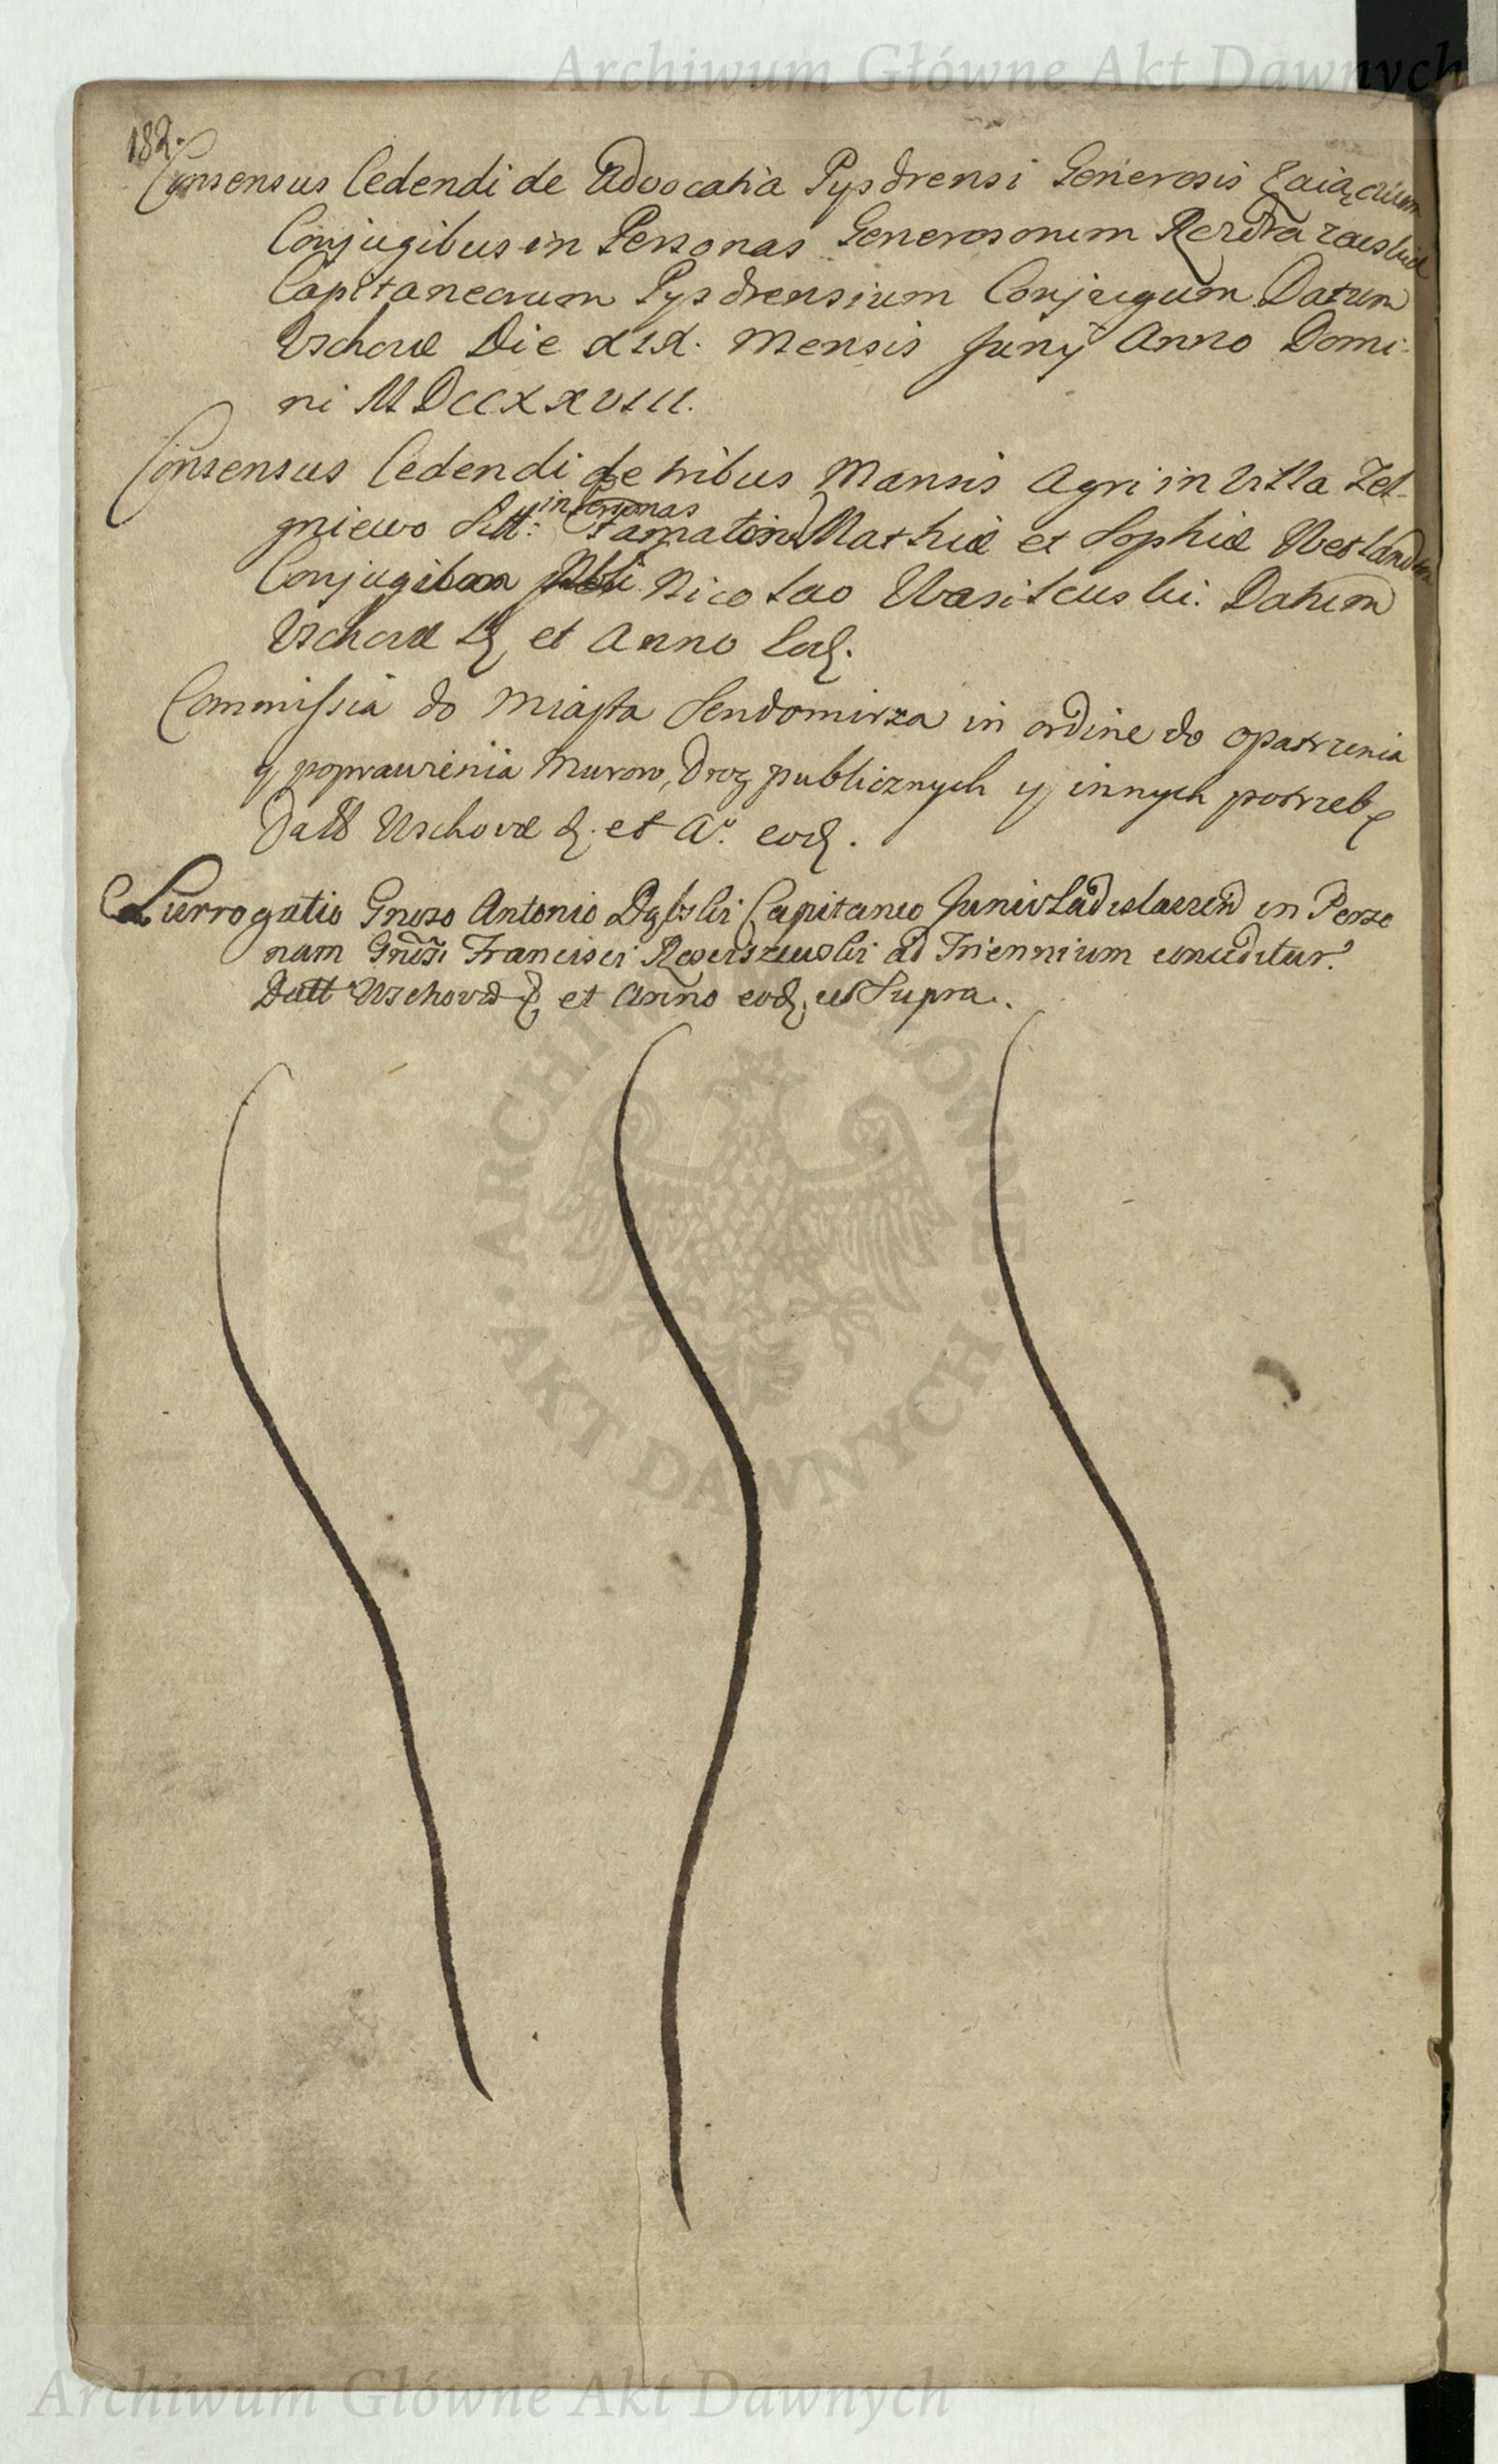 Archiwum Główne Akt Dawnych
182.
Consensus Cedendi de Advocatia Pysdrensi Generosis Zaiączkom
Conjugibus in Personas Generosorum
Capitaneorum Pysdrensium Conjugum Datum
Vschovæ Die XIX. Mensis Junij Anno Domi-
ni MDCCXXVIII.
Consensus Cedendi de tribus Mansis Agri in Villa Zel-
in Personas
gniewo Sitt: Famatorũ Mathiæ et Sophiæ
Conjugibus Nicolao Wasilewski. Datum
Vschovæ D et Anno Eod.
Commissia do Miasta Sendomirza in ordine do opatrzenia
y poprawienia Murow, Drog publicznych y innych potrzeb
Datt Uschovæ d. et Aº. eod.
Surrogatio Gnoso Antonio Dąbski Capitaneo Junivladislaviend in Perso
nam Gnosi Francisci ad Triennium conceditur.
Datt Uschovæ D et Anno eod, ut Supra.
ARCHIWUM GŁÓWNE
AKT DAWNYCH
Archiwum Główne Akt Dawnych